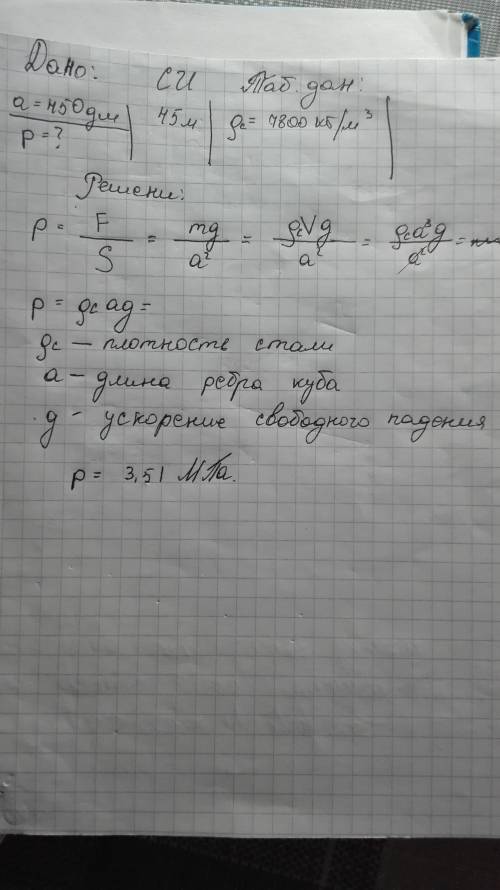 Дано: СИ Таб. дан:
a = 450 дм 45 м ρс = 7800 кг/м³
p = ?
Решени:
p = F/S = mg/a² = ρсVg/a² = ρсa³g/a² =
p = ρс ag =
ρс — плотность стали
a — длина ребра куба
g - ускорение свободного падения
p = 3,51 МПа.